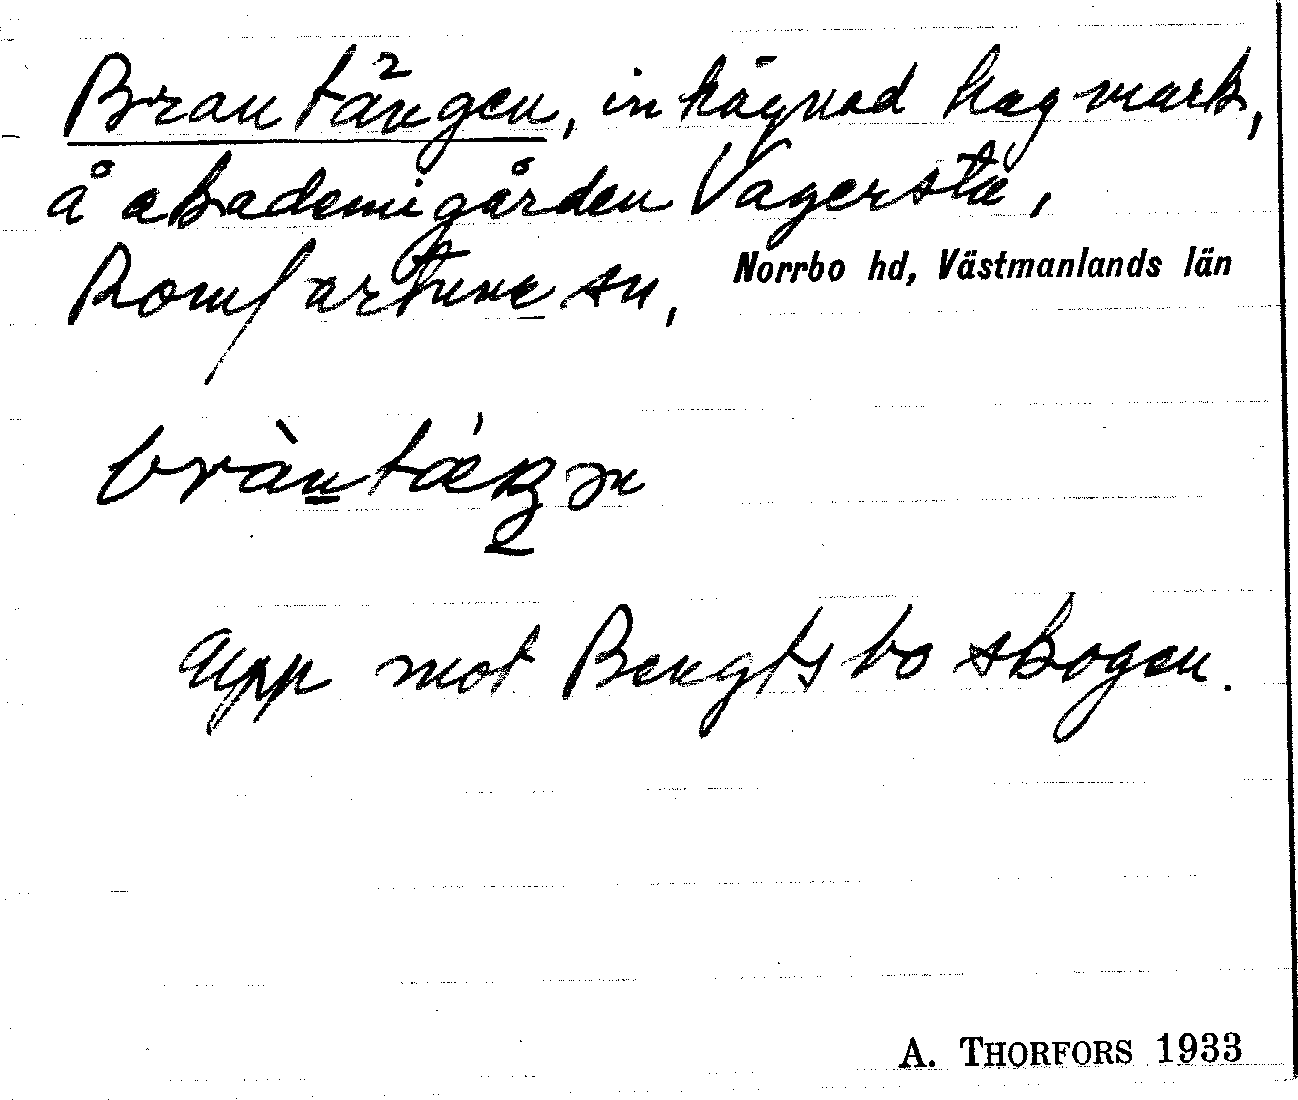 Brantängen, inhägnad hagmark,
å akademigården Vagersta,
Romfartuna sn, Norrbo hd, Västmanlands län
bràntǽŋən
Upp mot Bengtsboskogen.
A. THORFORS 1933